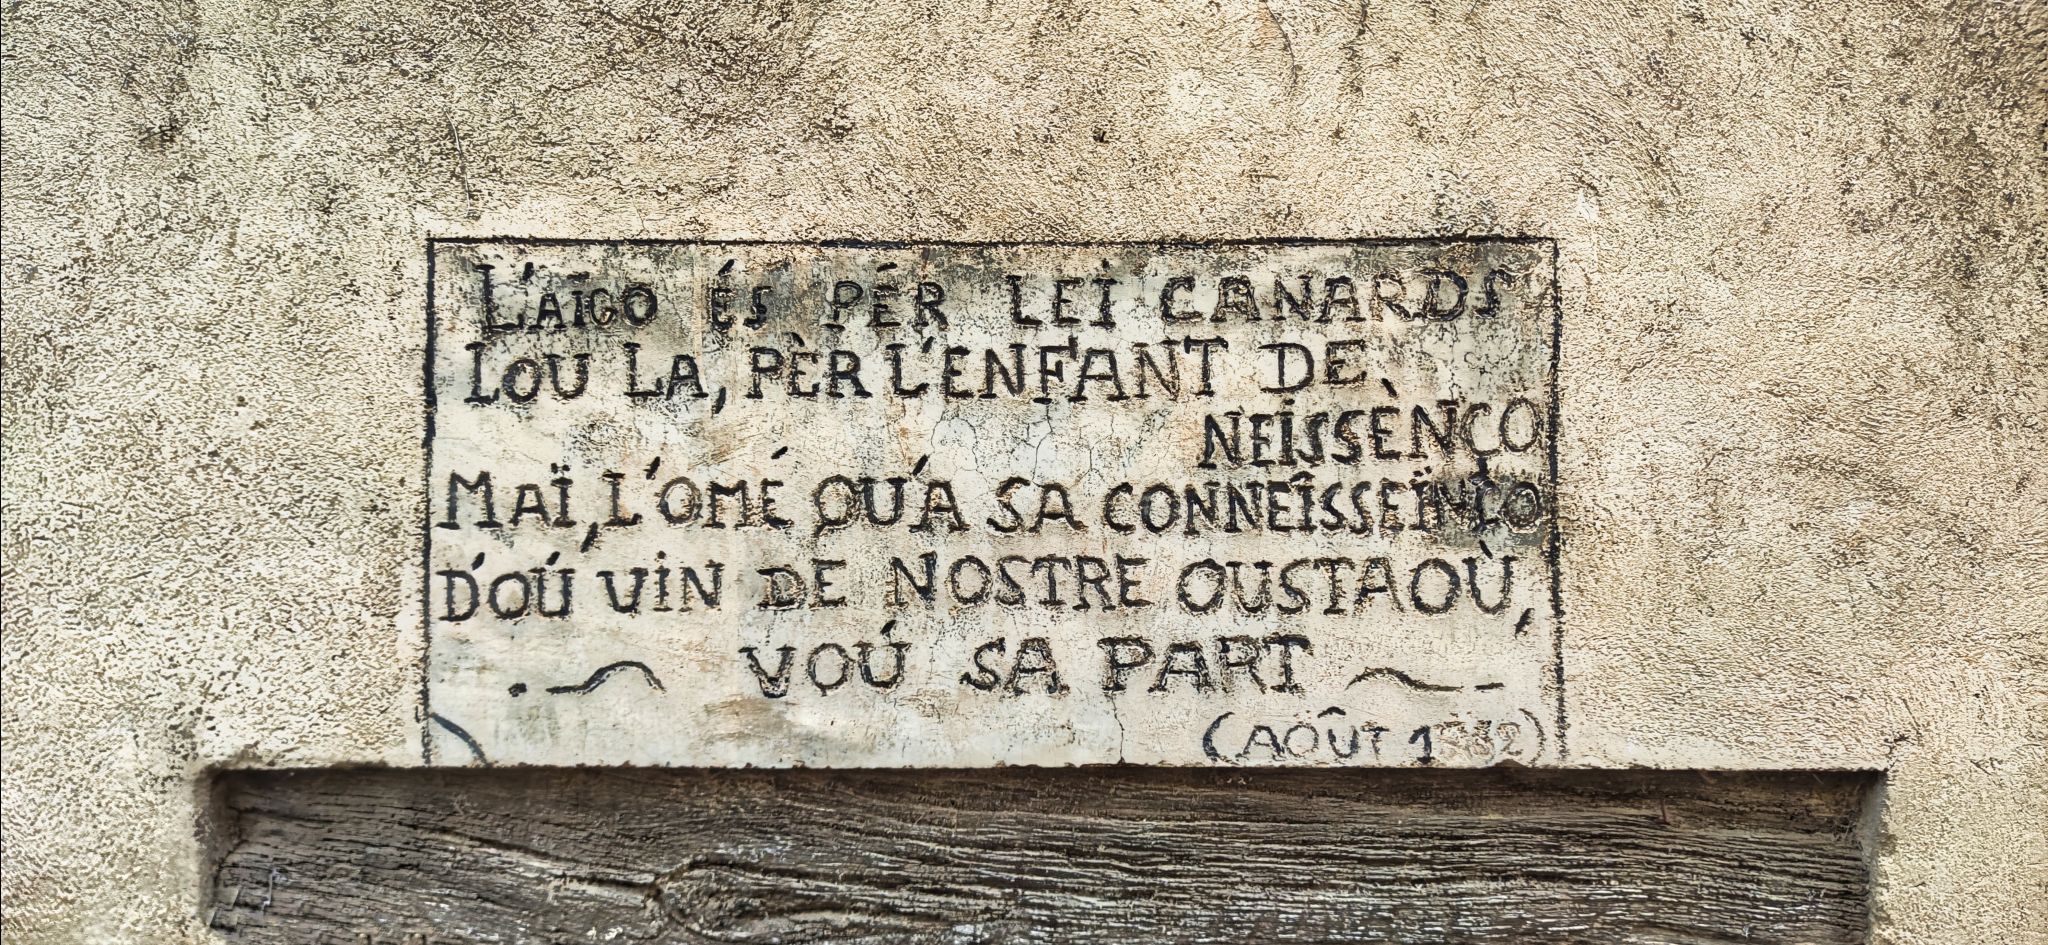 L'AÏGO ÉS PÉR LEÏ CANARDS
LOU LA, PÈR L'ENFANT DE
NEÏSSÈNÇO
MAÏ, L'OMÉ QU'A SA CONNEÎSSEÏNÇO
D'OÚ VIN DE NOSTRE OUSTAOÙ,
VOÚ SA PART
(AÖÛT